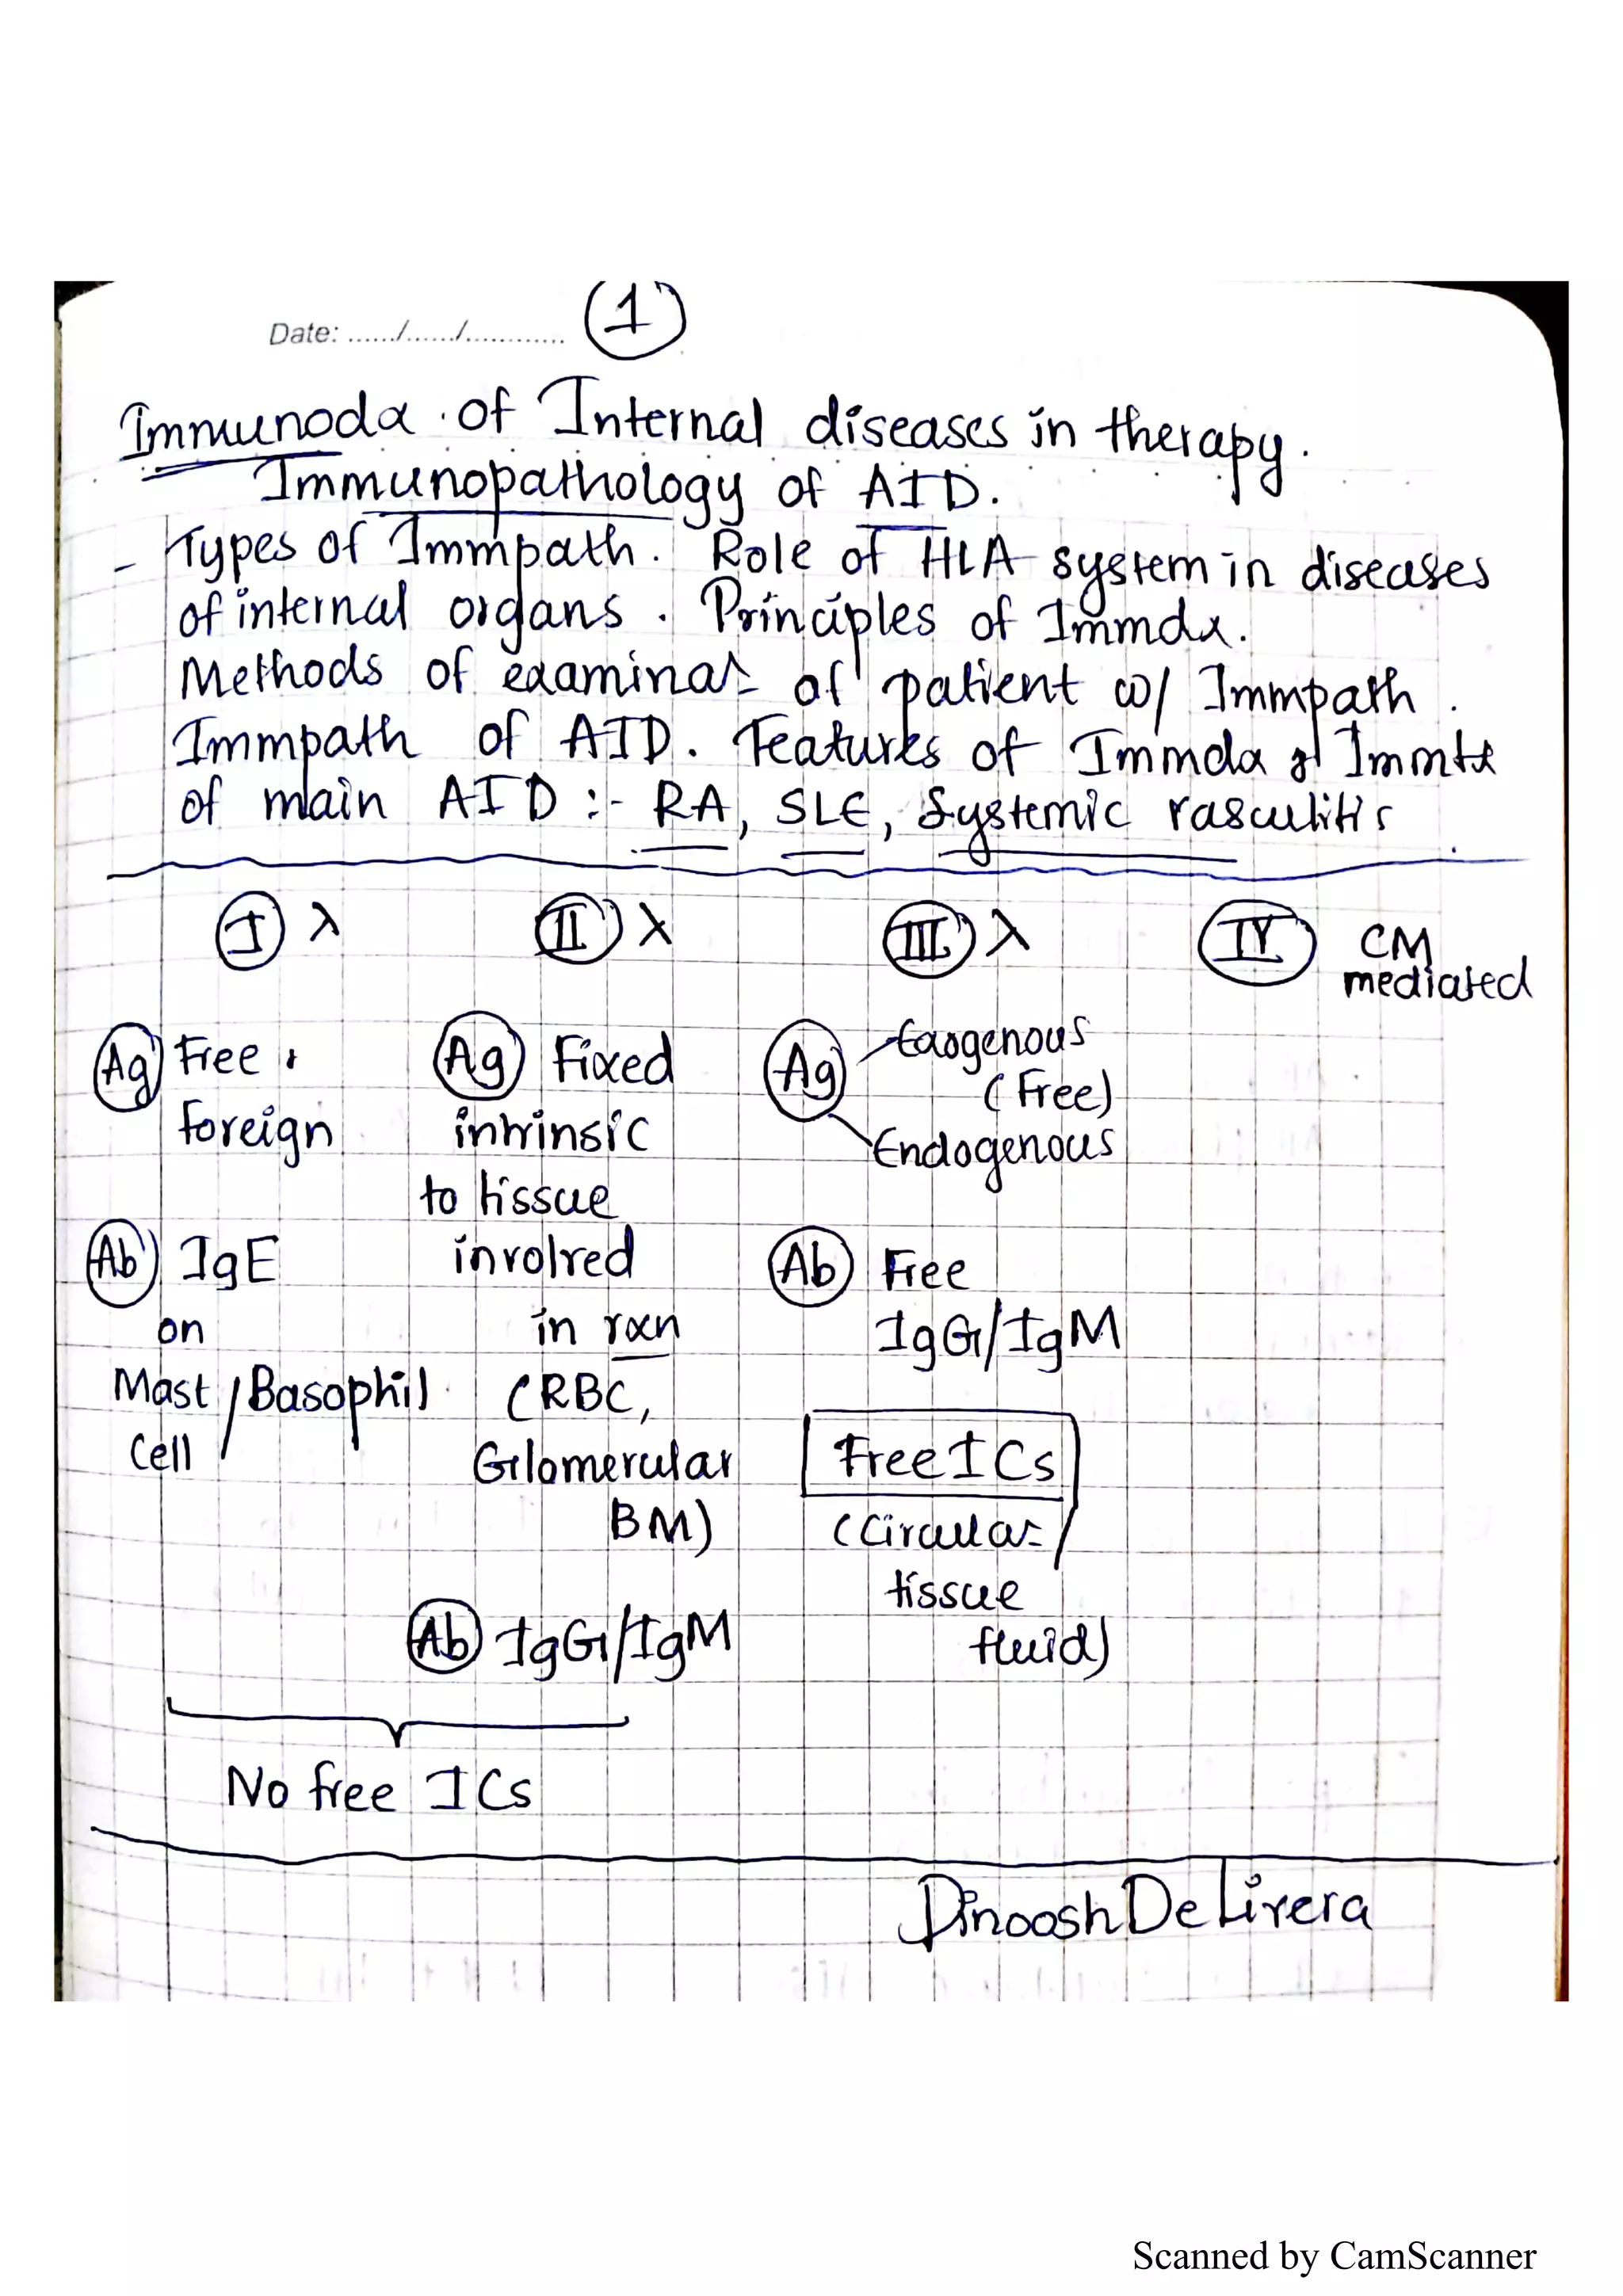 Date: ....../....../............ 1
Immunodx of Internal diseases in therapy.
Immunopathology of AID.
- Types of Immpath. Role of HLA system in diseases
of internal organs. Principles of Immdx.
Methods of examinat- of patient w/ Immpath.
Immpath of AID. Features of Immdx & Immtx
of main AID :- RA, SLE, Systemic vasculitis
I λ II λ III λ IV CM
mediated
Ag Free,
foreign
Ab IgE
on
Mast / Basophil
Cell
Ag Fixed
intrinsic
to tissue
involved
in rxn
(RBC,
Glomerular
BM)
Ab IgG/IgM
No free ICs
Ag Exogenous
(Free)
Endogenous
Ab Free
IgG/IgM
Free ICs
(Circulat- /
tissue
fluid)
Dinoosh De Livera
Scanned by CamScanner